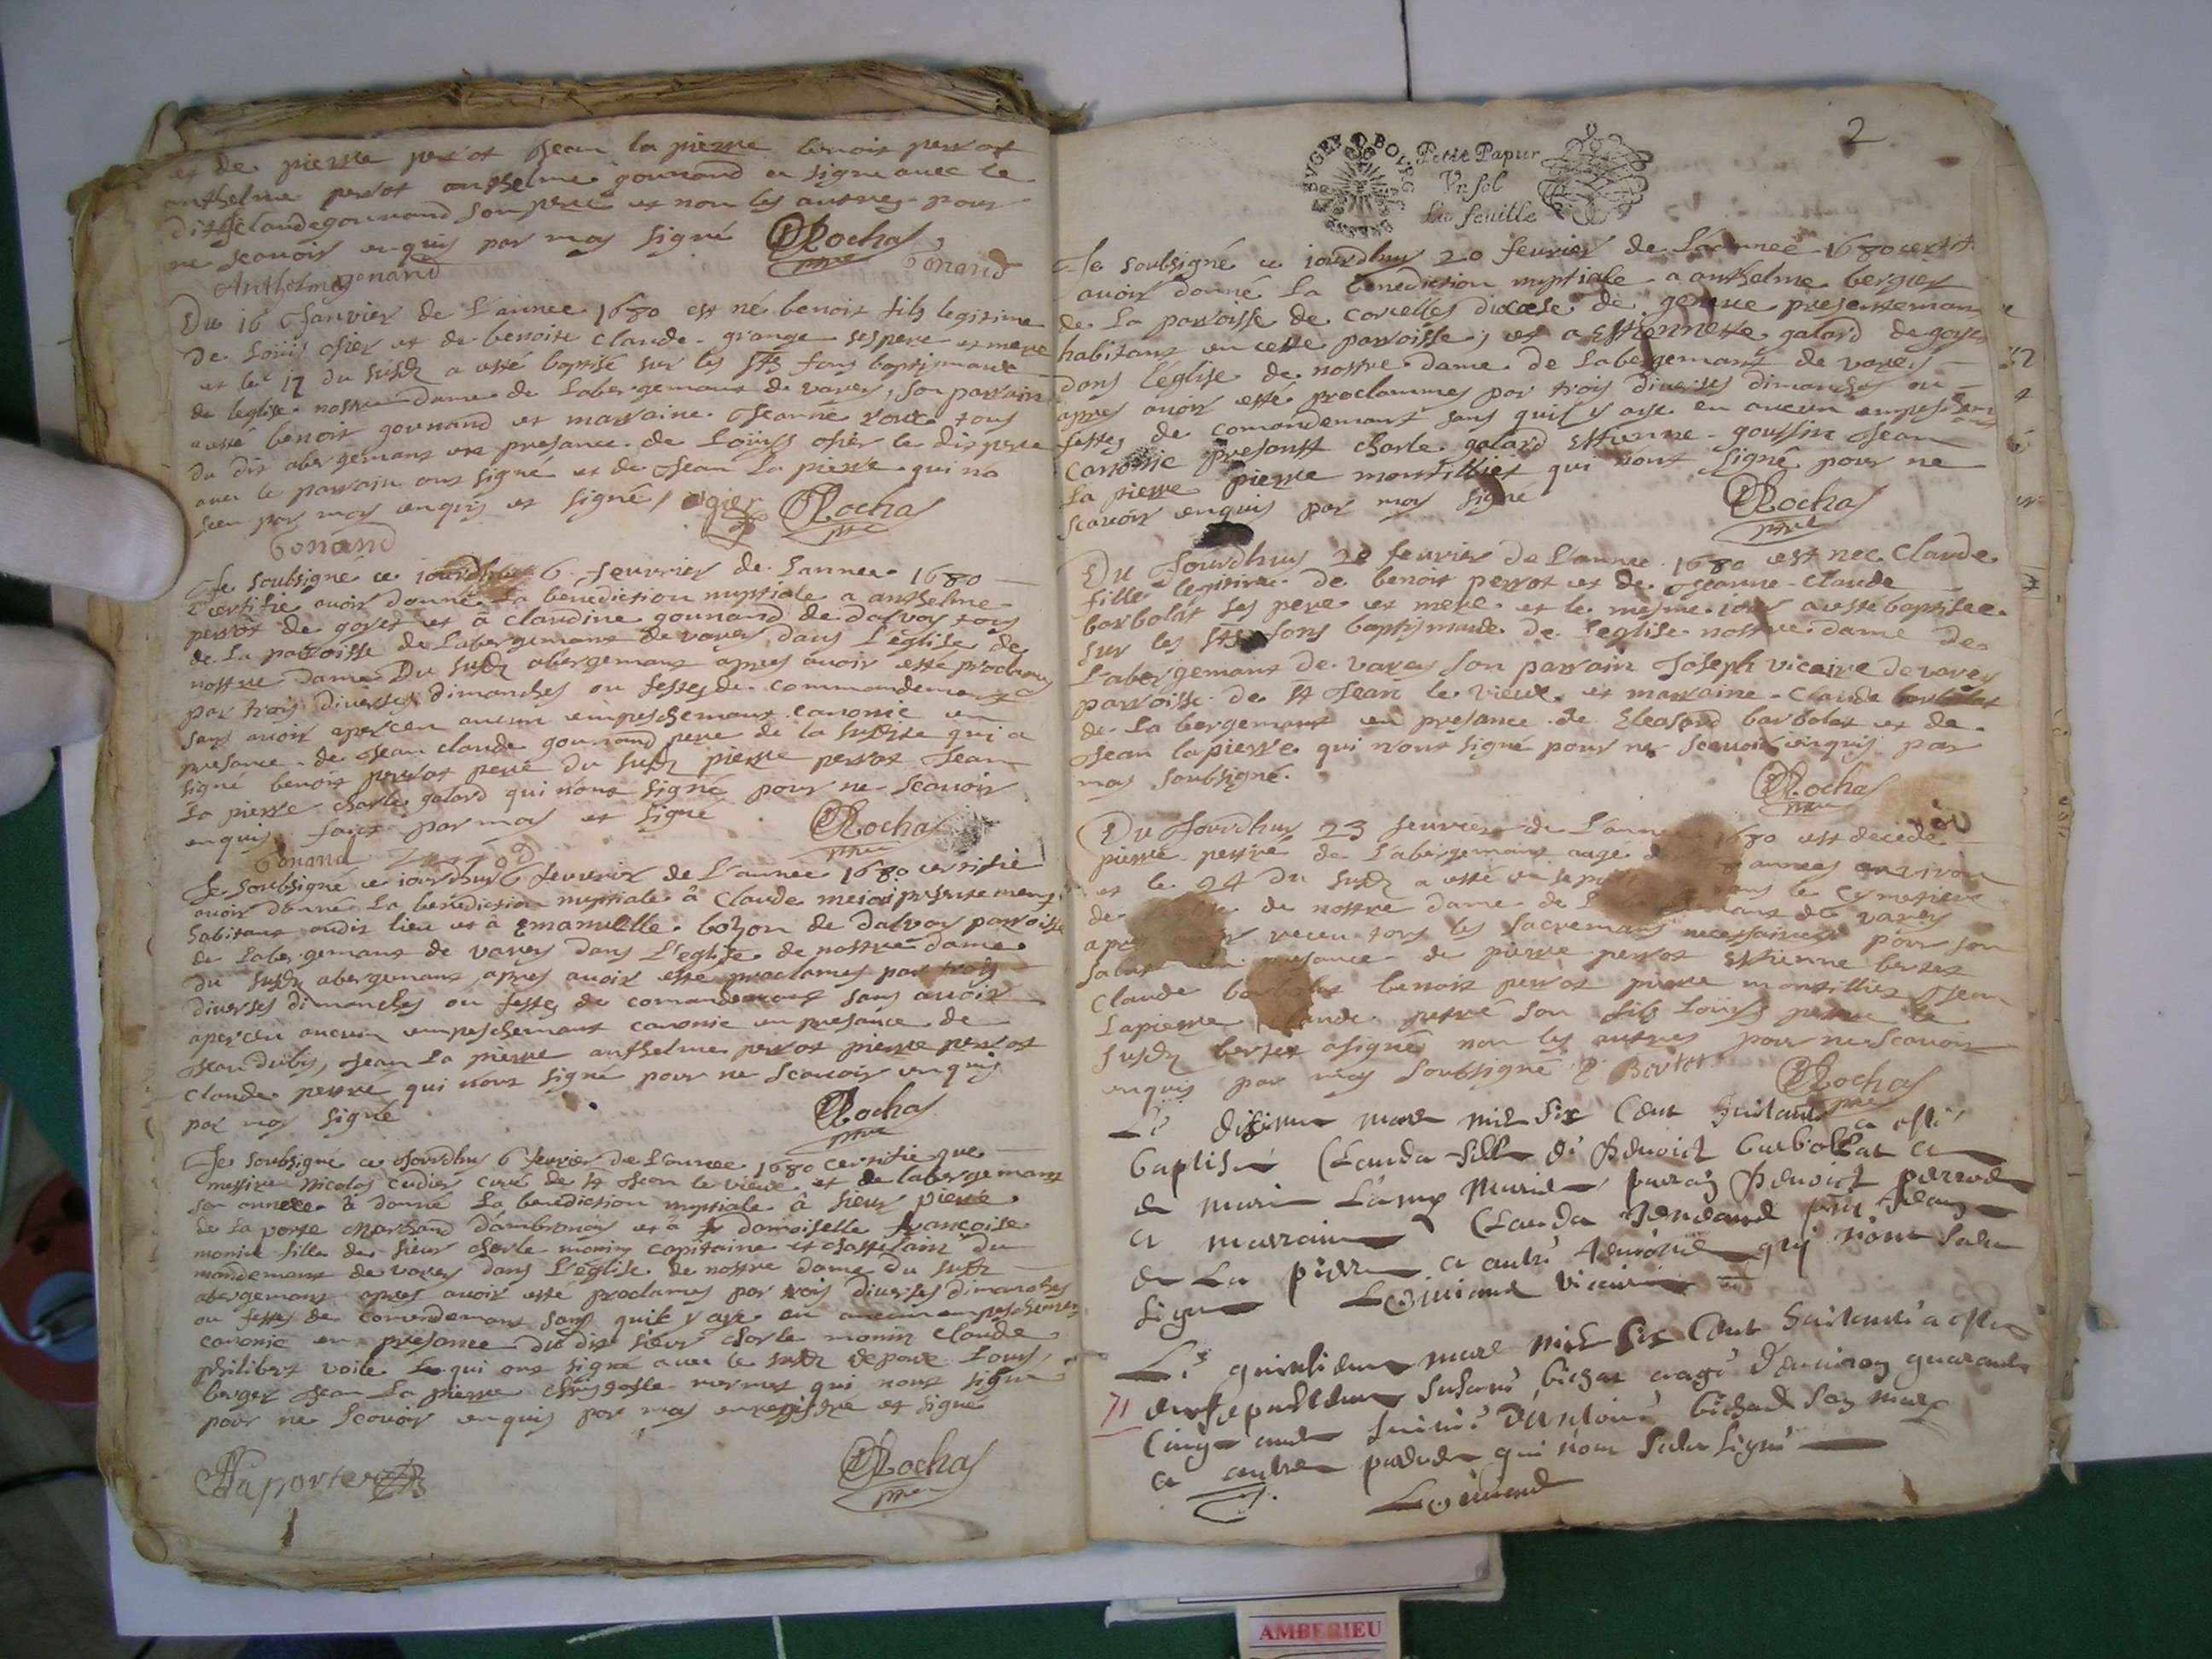 et de pierre perrot Jean la pierre benoit perrot
anthelme perrot anthelme gounand a signe avec le
dit Claude gounand son pere et non les autres pour
ne scavoir enquis par moy signé DRochas
pbre Gonand
Anthelme gonand
Du 16 Janvier de l'annee 1680 est né benoit fils legitime
de Loüis ogier et de benoite claude grange ses pere et mere
et le 17 du susdt a esté baptisé sur les Sts fons baptismaux
de leglise nostre dame de Labergemant de varey, son parrain
a esté benoit gounand et marraine Jeanne tous
du dit abergemant en presance de Loüys ogier le dit pere
avec le parrain ont signé et de Jean La pierre qui na
sceu par moy enquis et signé, ogier DRochas
pbre
Gonand
Je soubsigné ce iourdhuy 6 feuvrier de Lannee 1680
certifie avoir donné La benediction nuptiale a anthelme
perrot de goyet et à claudine gounand de dalvoy tous
de La parroisse de Labergemant de varey dans L'eglise de
nostre dame Du susdt abergemant apres avoir esté proclames
par trois diverses dimanches ou festes de commandement
sans avoir aperceu aucun empeschemant canonic en
presance de Jean claude gounand pere de la susdite qui a
signé benoit perrot pere du susdt pierre perrot Jean
La pierre charle galard qui n'ont signé pour ne scavoir
enquis fait par moy et signé DRochas
pbre
Gonand
Je soubsigné ce iourdhuy 6 feuvrier de L'annee 1680 certifie
avoir donné La benediction nuptiale à Claude presentement
habitant audit lieu et à Emanuelle bozon de dalvoy parroisse
de Labergemant de varey dans L'eglise de nostre dame
du susdt abergemant apres avoir esté proclames par trois
diverses dimanches ou festes de comandemant sans avoir
aperceu aucun empeschemant canonic en presance de
Jean dubis, Jean La pierre anthelme perrot pierre perrot
Claude perre qui n'ont signé pour ne scavoir enquis
par moy signé DRochas
pbre
Je soubsigné ce Jourdhuy 6 feuvrier de L'annee 1680 certifie que
messire Nicolas curé de St Jean le vieux et de labergemant
son annexe à donné La benediction nuptiale à sieur pierre
de La porte Marchand d'ambronay et à damoiselle françoise
monin fille de sieur charle monin capitaine et chastelain du
mandemant de varey dans L'église de nostre dame du susdt
abergemant apres avoir esté proclames par trois diverses dimanches
ou festes de comendemant sans quil y aye eu aucun empeschement
canonic en presance du dit sieur charle monin claude
philibert voile qui ont signé avec le susdt deporte Louis
berger Jean La pierre mermet qui n'ont signé
pour ne scavoir enquis par moy enregistre et signé
Laporte DRochas
pbre
2
BVGEY BOVRG
Petit Papier
Vn sol
La feuille
Je soubsigné ce iourdhuy 20 feuvrier de L'annee 1680 certifie
avoir donné La benediction nuptiale a anthelme bergier
de La parroisse de corcelles diocese de geneve presentement
habitant en cette parroisse, et a Estiennette galard de goyet
dans L'eglise de nostre dame de Labergemant de varey
apres avoir esté proclammes par trois diverses dimanches ou
festes de comandemant sans quil y aye eu aucun empeschement
canonic presantt charle galard Estienne goussin Jean
La pierre pierre montillier qui n'ont signé pour ne
scavoir enquis par moy signé DRochas
pbre
Du Jourdhuy 20 feuvrier de L'annee 1680 est nee Claude
fille legitime de benoit perrot et de Jeanne Claude
barbolat ses pere et mere et le mesme iour a esté baptisee
sur les Sts fons baptismaux de leglise nostre dame de
L'abergemant de varey son parrain Joseph vicaire de varey
parroisse de St Jean le vieux et marraine Claude barbolat
de Labergemant en presance de barbolat et de
Jean lapierre qui n'ont signé pour ne scavoir enquis par
moy soubsigné. DRochas
pbre
Du Jourdhuy 23 feuvrier de L'annee 1680 est decedé
pierre perre de L'abergemant aagé annees environ
et le 24 du susdt a esté dans le cymetiere
de de nostre dame de de varey
apres receu tous les sacremans necessaires pour son
salut en presance de pierre perrot Estienne bertet
Claude barbolat benoit perrot pierre montillier Jean
Lapierre Claude perre son fils Loüys perre le
susdt bertet a signé non les autres pour ne scavoir
enquis par moy soubsigné E Bertet DRochas
pbre
Le mars mil six cent huitante a esté
baptisée Clauda fille de Benoict Barbollat et
de Marie parrain Benoict perrod
et marraine Clauda Jean
de La pierre et autre qui n'ont sceu
signer Leguiand vicaire
Le mars mil six cent huitante a esté
71
bichat aagée d'environ quarante
cinq bichat son mary
et autres qui n'ont sceu signer
Leguiand
AMBERIEU